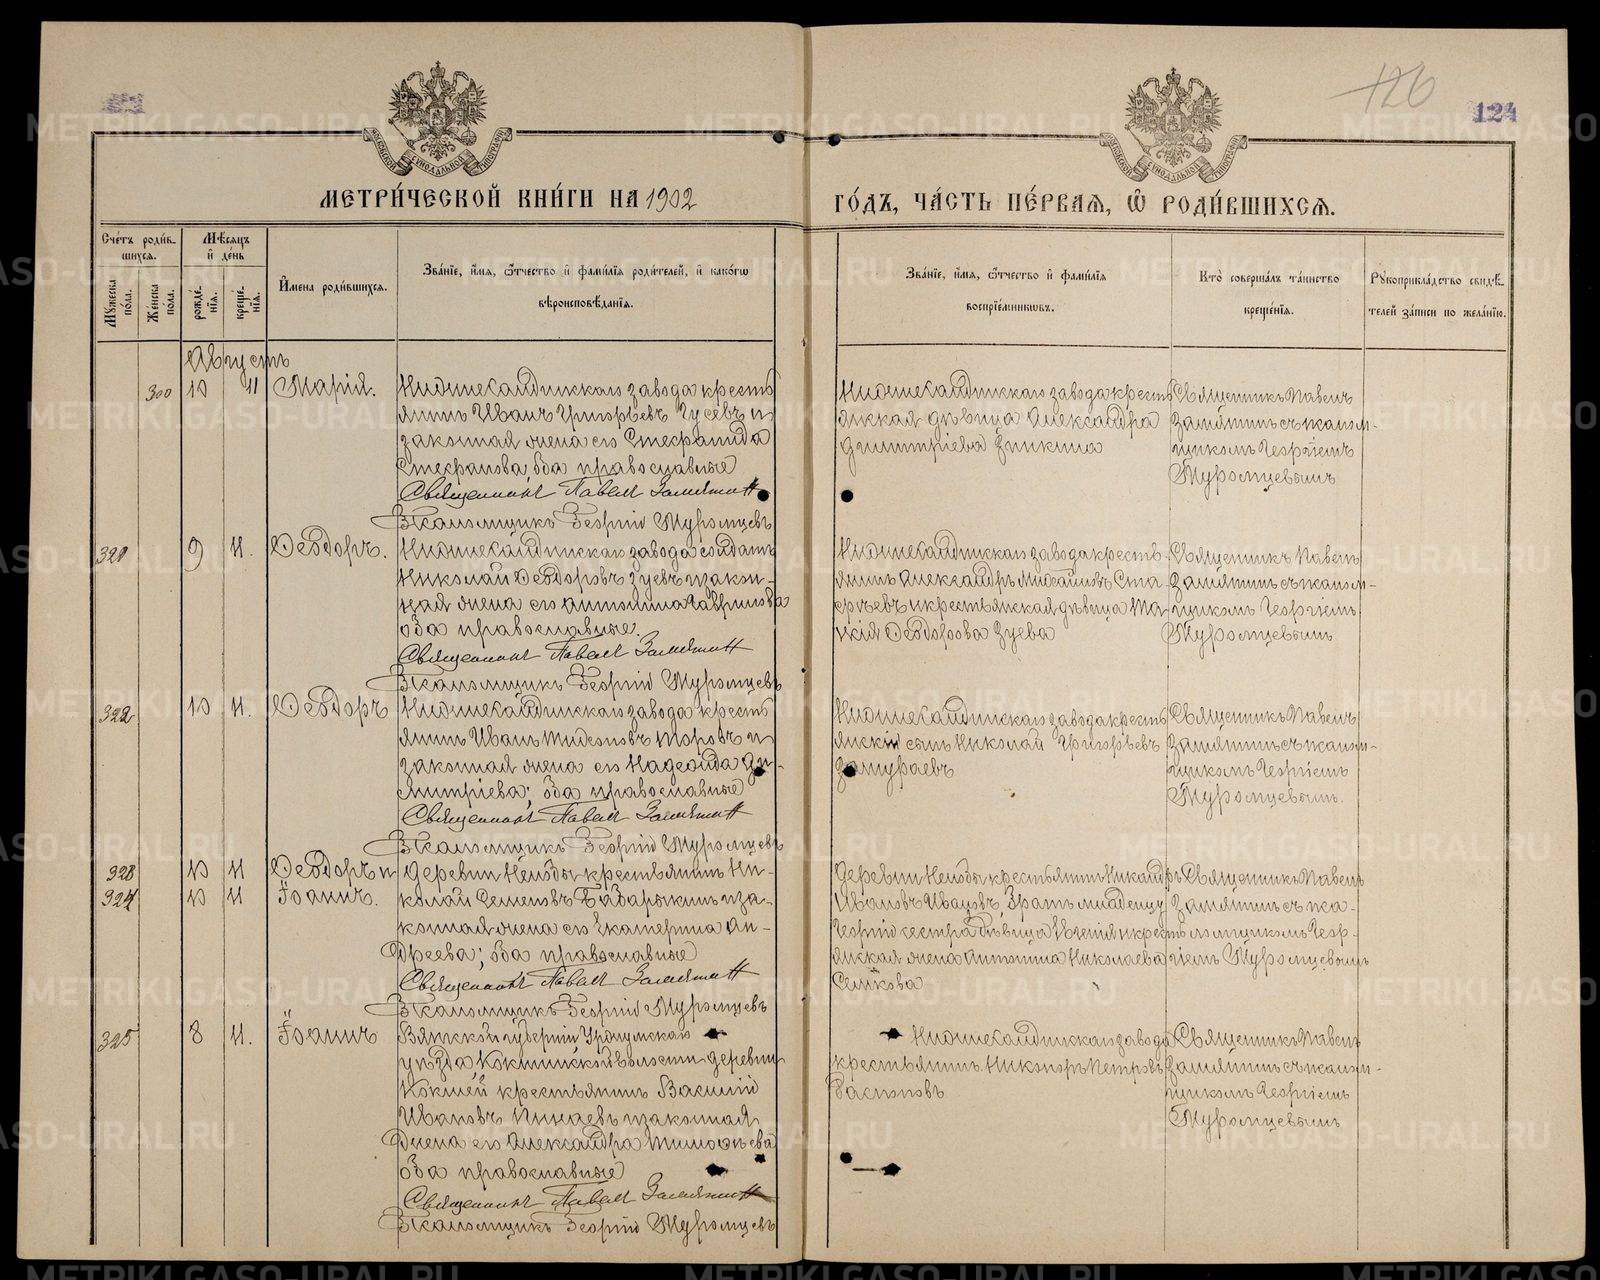 126
124
МЕТРИ́ЧЕСКОЙ КНИ́ГИ НА 1902
ГО́ДЪ, ЧА́СТЬ ПЕ́РВАѦ, Ѽ РОДИ́ВШИХСѦ.
Сче́тъ роди́в-
шихсѧ.
Мꙋ́жеска по́ла.
Же́нска по́ла.
Мѣ́сѧцъ и҆ де́нь
рожде́нїѧ.
креще́нїѧ.
И҆мена роди́вшихсѧ.
Зва́нїе, и҆́мѧ, ѻ҆́тчество и҆ фами́лїѧ роди́телей, и҆ како́гѡ
вѣроисповѣ́данїѧ.
Зва́нїе, и҆́мѧ, ѻ҆́тчество и҆ фами́лїѧ
воспрїе́мникѡвъ.
Кто̀ соверша́лъ та́инство
креще́нїѧ.
Рꙋкоприкла́дство свидѣ́-
телей за́писи по жела́нїю.
Августъ
300 10 11 Марія.
Нижнесалдинскаго завода кресть
янинъ Иванъ Григорьевъ Гусевъ и
законная жена его Стефанида
Стефанова, оба православные
Священникъ Павелъ Замятинъ
Псаломщикъ Георгій Муромцевъ
Нижнесалдинскаго завода кресть
янская дѣвица Александра
Димитріева Зыкина
Священникъ Павелъ
Замятинъ съ псалом-
щикомъ Георгіемъ
Муромцевымъ
321 9 11. Ѳеодоръ.
Нижнесалдинскаго завода солдатъ
Николай Ѳеодоровъ Зуевъ и закон-
ная жена его Антонина Гаврилова
оба православные.
Священникъ Павелъ Замятинъ
Псаломщикъ Георгій Муромцевъ
Нижнесалдинскаго завода кресть-
янинъ Александръ Михайловъ Ста-
и крестьянская дѣвица
Ѳеодорова Зуева
Священникъ Павелъ
Замятинъ съ псалом-
щикомъ Георгіемъ
Муромцевымъ
322 10 11. Ѳеодоръ
Нижнесалдинскаго завода кресть
янинъ Иванъ и
законная жена его Надежда Ди-
митріева; оба православные
Священникъ Павелъ Замятинъ
Псаломщикъ Георгій Муромцевъ
Нижнесалдинскаго завода кресть
янскій сынъ Николай Григорьевъ
Замураевъ
Священникъ Павелъ
Замятинъ съ псалом-
щикомъ Георгіемъ
Муромцевымъ.
323 10 11 Ѳеодоръ и
324 10 11 Іоаннъ.
Деревни Нелобы крестьянинъ Ни-
колай Семеновъ и за-
конная жена его Екатерина Ан-
дреева; оба православные
Священникъ Павелъ Замятинъ
Псаломщикъ Георгій Муромцевъ
Деревни Нелобы крестьянинъ Никандръ
Ивановъ Ивановъ, братъ младенцу
Георгій сестра дѣвица и кресть
янская жена Антонина Николаева
Священникъ Павелъ
Замятинъ съ пса-
ломщикомъ Геор-
гіемъ Муромцевымъ
325 8 11. Іоаннъ
Вятской губерніи Уржумскаго
уѣзда, волости деревни
крестьянинъ Василій
Ивановъ и законная
жена его Александра Тимоѳеева
оба православные
Священникъ Павелъ Замятинъ
Псаломщикъ Георгій Муромцевъ
Нижнесалдинскаго завода
крестьянинъ Никоноръ Петровъ
Распоповъ
Священникъ Павелъ
Замятинъ съ псалом-
щикомъ Георгіемъ
Муромцевымъ
METRIKI.GASO-URAL.RU